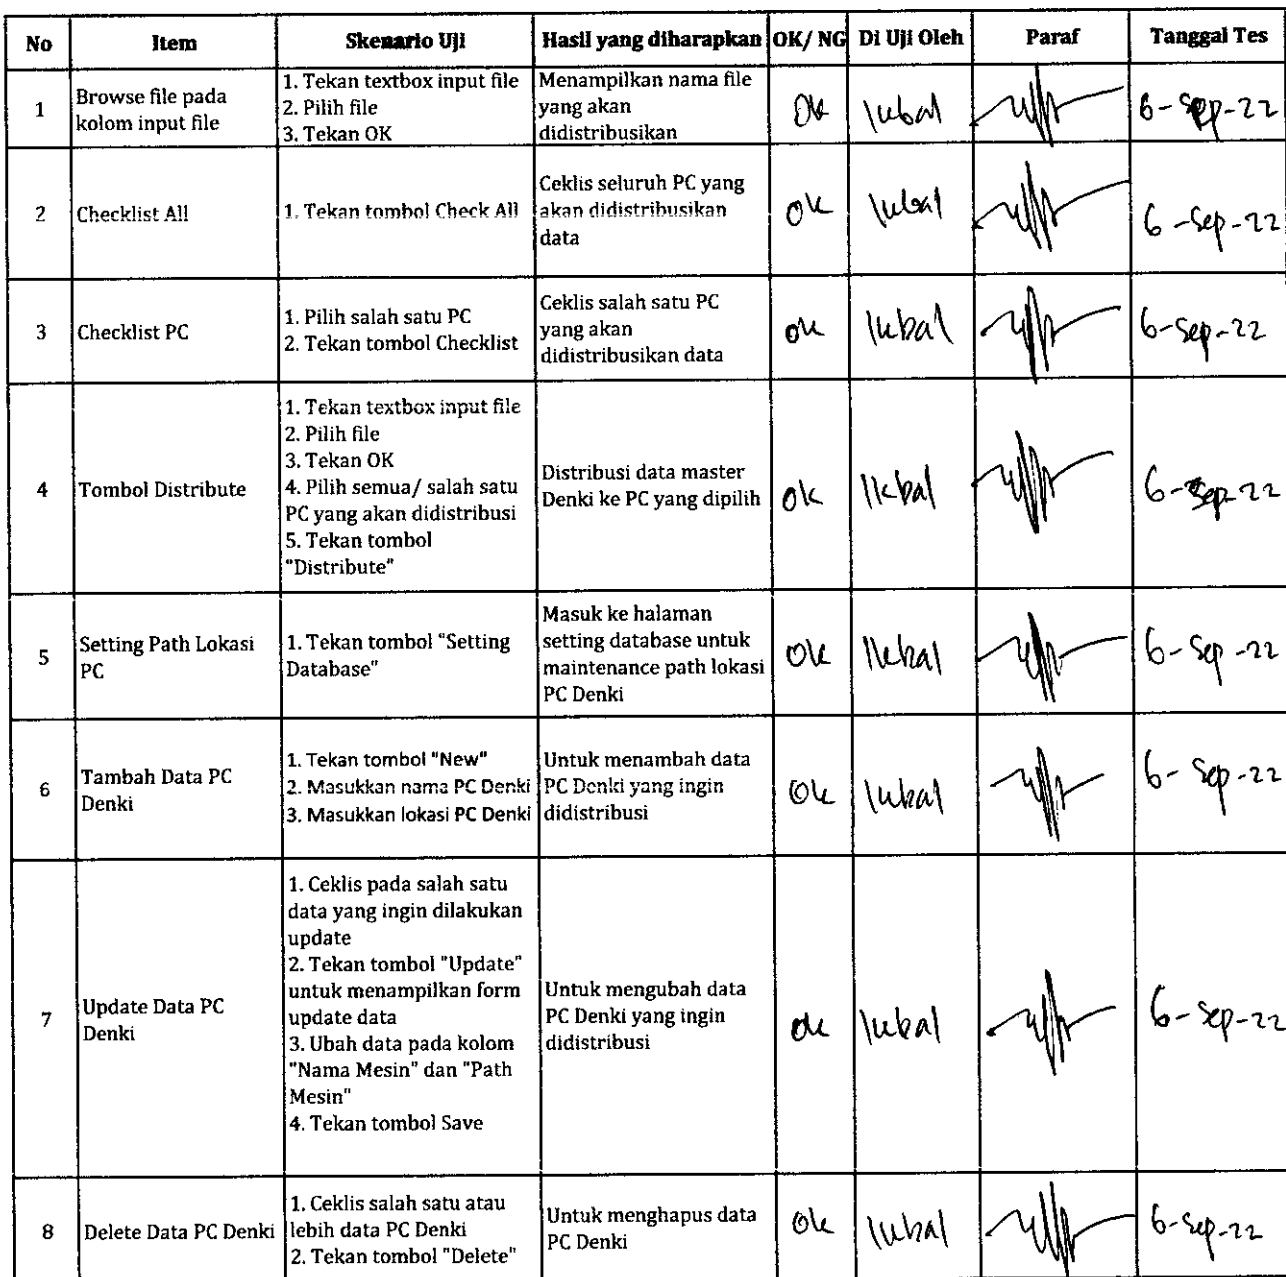 No Item Skenario Uji Hasil yang diharapkan OK/ NG Di Uji Oleh Paraf Tanggal Tes
1
Browse file pada
kolom input file
1. Tekan textbox input file
2. Pilih file
3. Tekan OK
Menampilkan nama file
yang akan
didistribusikan
Ok
Ikbal
6-Sep-22
2
Checklist All
1. Tekan tombol Check All
Ceklis seluruh PC yang
akan didistribusikan
data
Ok
Ikbal
6-Sep-22
3
Checklist PC
1. Pilih salah satu PC
2. Tekan tombol Checklist
Ceklis salah satu PC
yang akan
didistribusikan data
Ok
Ikbal
6-Sep-22
4
Tombol Distribute
1. Tekan textbox input file
2. Pilih file
3. Tekan OK
4. Pilih semua/ salah satu
PC yang akan didistribusi
5. Tekan tombol
"Distribute"
Distribusi data master
Denki ke PC yang dipilih
Ok
Ikbal
6-Sep-22
5
Setting Path Lokasi
PC
1. Tekan tombol "Setting
Database"
Masuk ke halaman
setting database untuk
maintenance path lokasi
PC Denki
Ok
Ikbal
6-Sep-22
6
Tambah Data PC
Denki
1. Tekan tombol "New"
2. Masukkan nama PC Denki
3. Masukkan lokasi PC Denki
Untuk menambah data
PC Denki yang ingin
didistribusi
Ok
Ikbal
6-Sep-22
7
Update Data PC
Denki
1. Ceklis pada salah satu
data yang ingin dilakukan
update
2. Tekan tombol "Update"
untuk menampilkan form
update data
3. Ubah data pada kolom
"Nama Mesin" dan "Path
Mesin"
4. Tekan tombol Save
Untuk mengubah data
PC Denki yang ingin
didistribusi
Ok
Ikbal
6-Sep-22
8
Delete Data PC Denki
1. Ceklis salah satu atau
lebih data PC Denki
2. Tekan tombol "Delete"
Untuk menghapus data
PC Denki
Ok
Ikbal
6-Sep-22